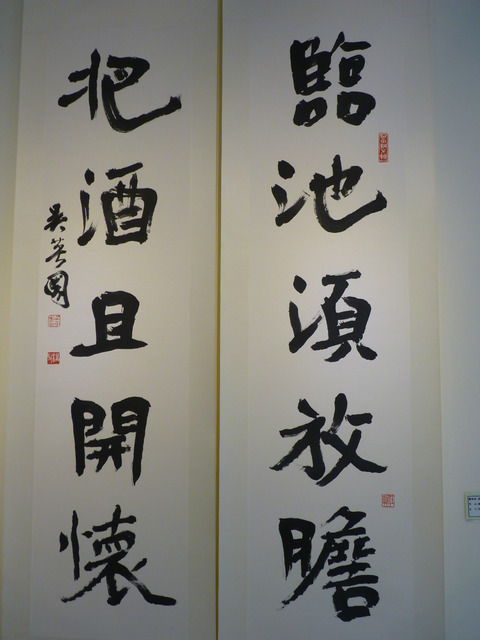 臨池須放膽
把酒且開懷
吳英國